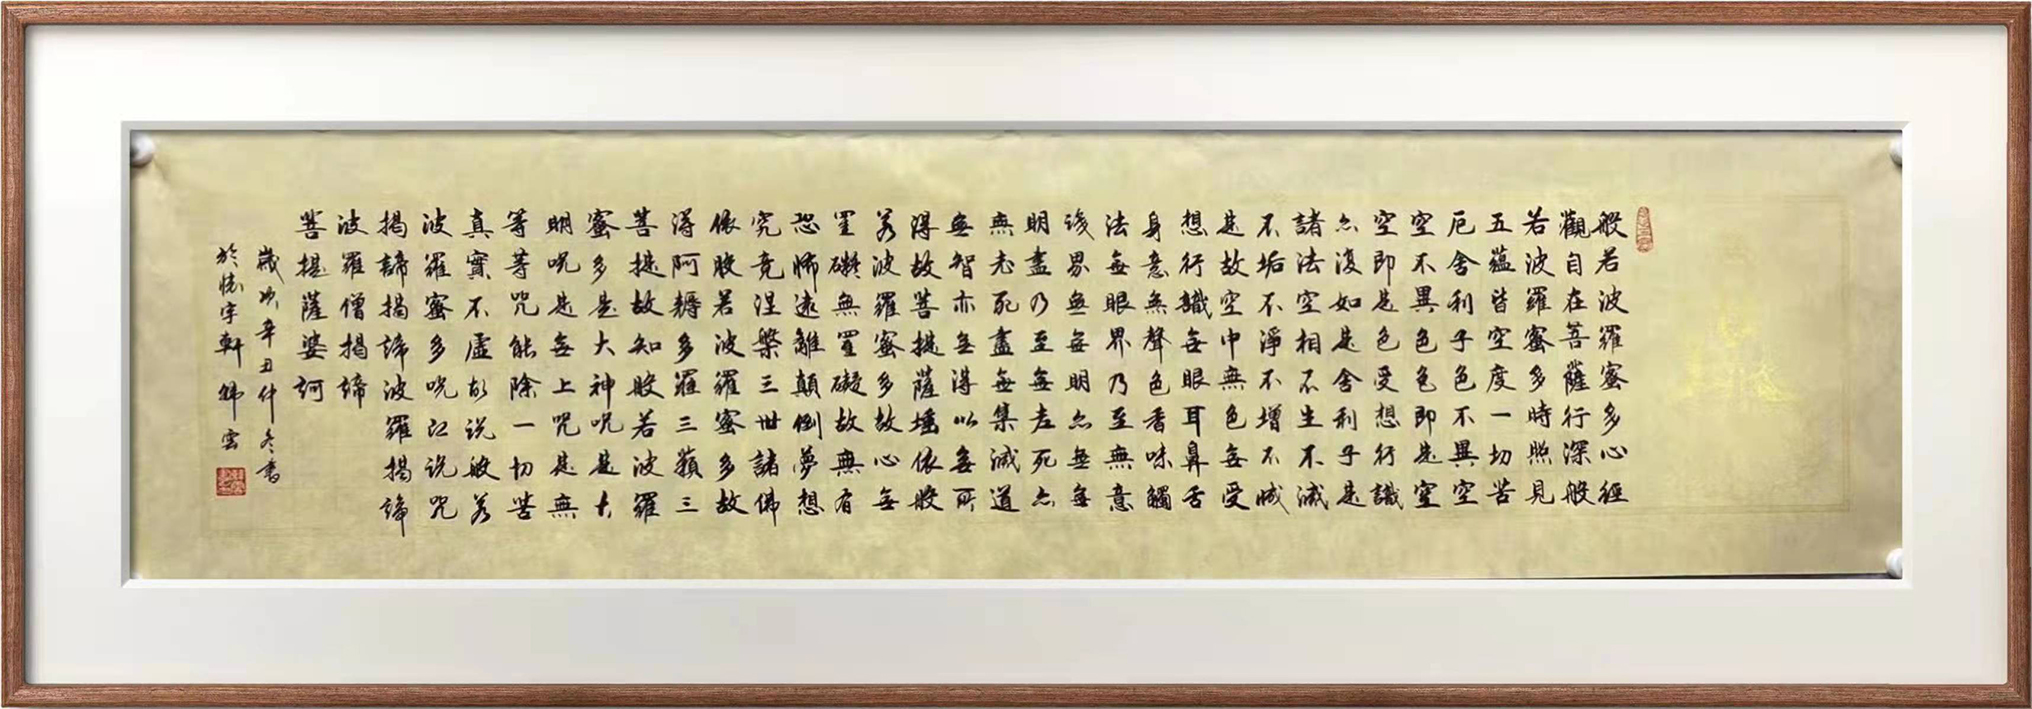 般若波羅蜜多心經
觀自在菩薩行深般
若波羅蜜多時照見
五蘊皆空度一切苦
厄舍利子色不異空
空不異色色即是空
空即是色受想行識
亦復如是舍利子是
諸法空相不生不滅
不垢不淨不增不減
是故空中無色無受
想行識無眼耳鼻舌
身意無聲色香味觸
法無眼界乃至無意
識界無無明亦無無
明盡乃至無老死亦
無老死盡無集滅道
無智亦無得以無所
得故菩提薩埵依般
若波羅蜜多故心無
罣礙無罣礙故無有
恐怖遠離顛倒夢想
究竟涅槃三世諸佛
依般若波羅蜜多故
得阿耨多羅三藐三
菩提故知般若波羅
蜜多是大神咒是大
明咒是無上咒是無
等等咒能除一切苦
真實不虛故說般若
波羅蜜多咒即說咒
揭諦揭諦波羅揭諦
波羅僧揭諦
菩提薩婆訶
歲次辛丑仲冬書
於宇軒雲